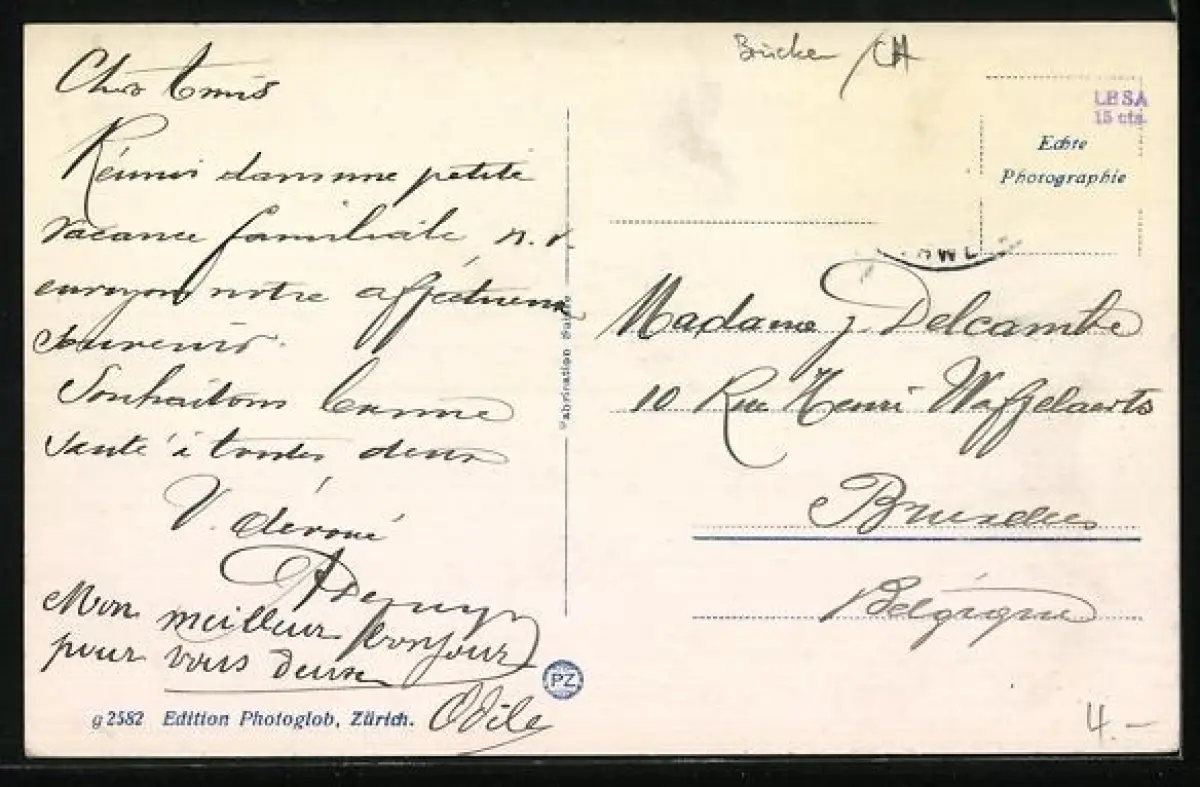 Chers Amis
Réunis dans une petite
vacance familiale n. v.
envoyons notre affectueux
souvenir.
Souhaitons bonne
santé à toutes deux
V. dévoué
Mon meilleur bonjour
pour vous deux
Odile
g 2582 Edition Photoglob, Zürich.
PZ
Fabrication Suisse
Brücken / CH
LBSA
15 cts.
Echte
Photographie
Madame J. Delcambe
10 Rue Henri Waffelaerts
Bruxelles
Belgique
4.-